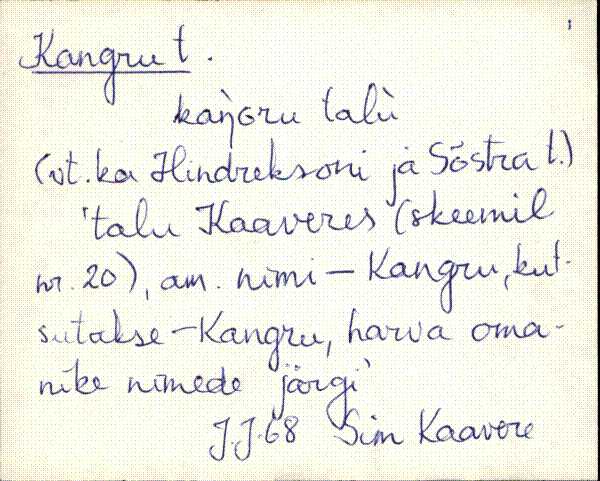 Kangru t.
kaŋGru talù
(vt. ka Hindreksoni ja Sõstra t.)
'talu Kaaveres (skeemil
nr. 20), am. nimi – Kangru, kut-
sutakse – Kangru, harva oma-
nike nimede järgi'
J.J. 68 Sim Kaavere